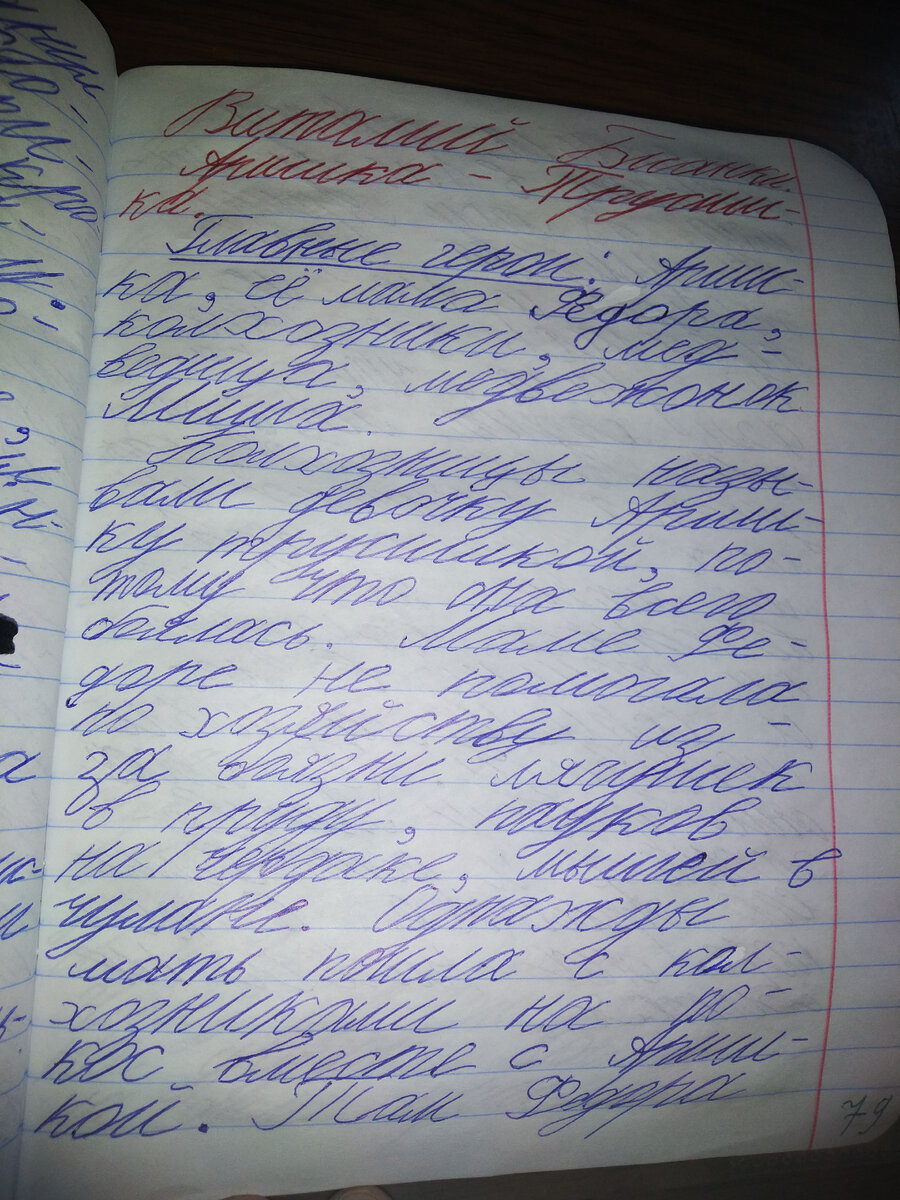 Виталий Бианки.
Аришка - Трусиш-
ка.
Главные герои: Ариш-
ка, её мама Федора,
колхозники, мед-
ведица, медвежонок
Миша.
Колхозницы назы-
вали девочку Ариш-
ку трусишкой, по-
тому что она всего
боялась. Маме Фе-
доре не помогала
по хозяйству из-
за боязни лягушек
в пруду, пауков
на чердаке, мышей в
чулане. Однажды
мать пошла с кол-
хозниками на по-
кос вместе с Ариш-
кой. Там Федора
79